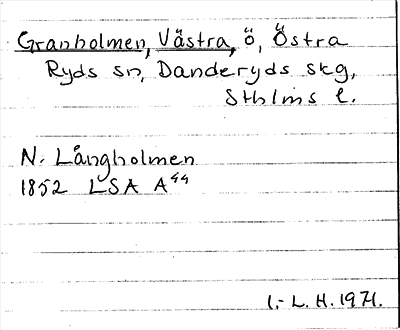 Granholmen, Västra, ö, Östra
Ryds sn, Danderyds skg,
Sthlms l.
N. Långholmen
1852 LSA A44
1.- L. H. 1971.